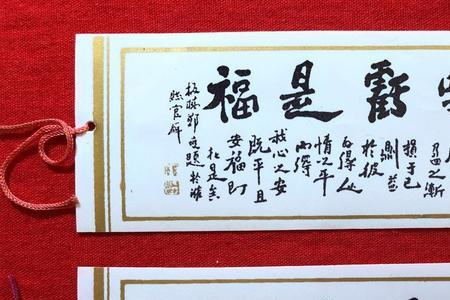 虧是福
盈之漸
損于己
則益
於彼
外得人
情之平
而得
我心之安
既平且
安福即
在是矣
板橋鄭燮題於濰
縣官廨